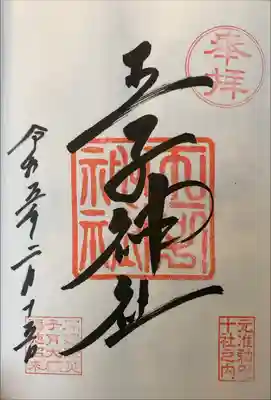 奉拝
王子神社
王子
神社
令和五年二月十五日
元准勅祭
十社之内